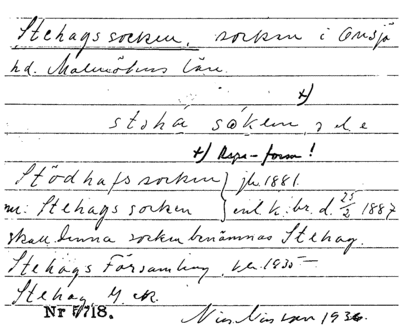 Stehagssocken, socken i Onsjö
hd. Malmöhus län.
+)
stəhá sòkən, 
+) Repr-form!
Stödhafssocken } jb. 1881.
nu: Stehagssocken } enl. k. br. d. 25/2 1887
skall denna socken benämnas Stehag.
Stehags Församling, 1935 —
Stehag
Nr 5718. Nils Nilsson 1936.